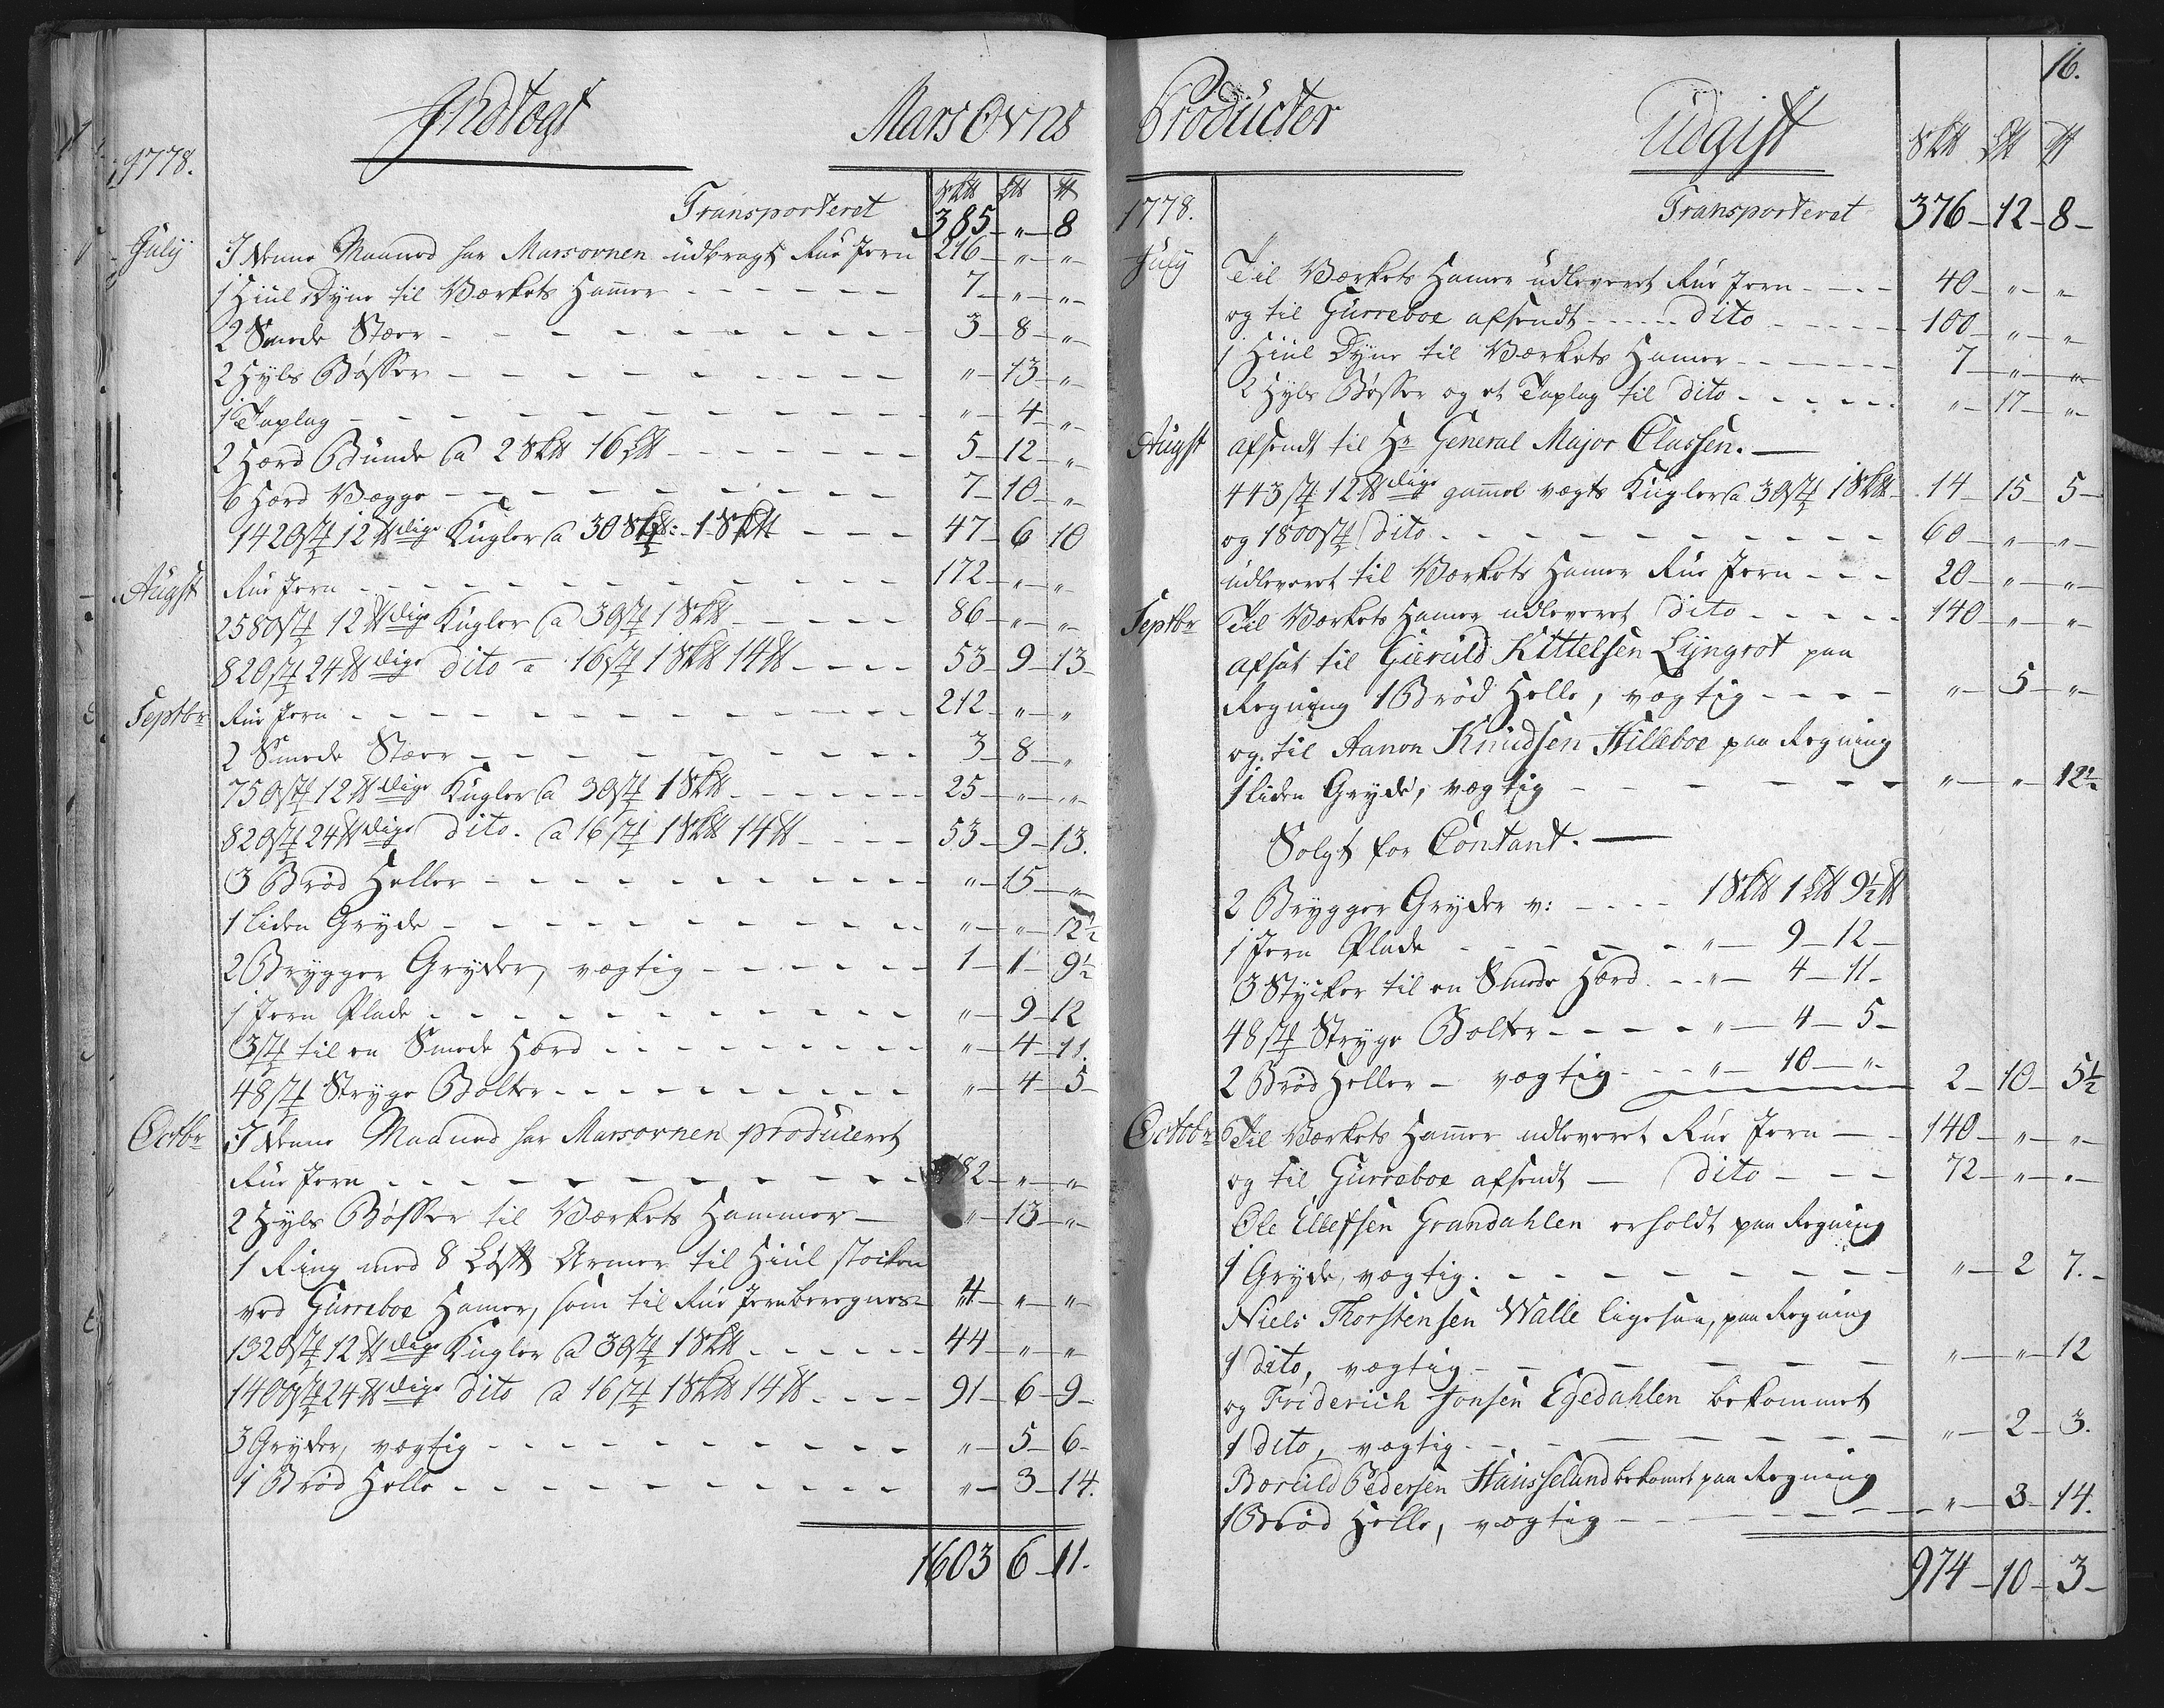 Indtogt Mars Ovns
1778.
S℔ L℔ ℔
Transporteret 385 – „ – 8
July I denne Maaned har Marsovnen udbragt Rue Jern 216 – „ – „
1 Hiul Dyne til Værkets Hamer 7 – „ – „
2 Smede Stæer 3 – 8 – „
2 Hyls Bøsser „ – 13 – „
1 Taplag „ – 4 – „
2 Hærd Bunde a 2 S℔ 16 L℔ 5 – 12 – „
6 Hærd Vægge 7 – 10 – „
1420 st 12 ℔dige Kugler a 30 st: 1 S℔ 47 – 6 10
Augst Rue Jern 172 – „ – „
2580 st 12 ℔dige Kugler a 30 st 1 S℔ 86 – „ – „
820 st 24 ℔dige dito a 16 st 1 S℔ 14 ℔ 53 – 9 – 13
Septbr Rue Jern 212 – „ – „
2 Smede Stæer 3 – 8 – „
750 st 12 ℔dige Kugler a 30 st 1 S℔ 25 – „ – „
820 st 24 ℔dige dito. a 16 st 1 S℔ 14 ℔ 53 – 9 – 13.
3 Brød Heller „ – 15 – „
1 liden Gryde „ – „ – 12½
2 Brygger Gryder, vægtig 1 – 1 – 9½
1 Jern Plade „ – 9 – 12
3 st til en Smede Hærd „ – 4 – 11.
48 st Stryge Bolter „ – 4 – 5
Octbr I denne Maaned har Marsovnen produceret
Rue Jern 182 – „ – „
2 Hyls Bøsser til Værkets Hammer – „ – 13 – „
1 Ring med 8 Løft Armer til Hiul stocken
ved Gurreboe Hamer, som til Rue Jern beregnes 4 – „ – „
1320 st 12 ℔dige Kugler a 30 st 1 S℔ 44 – „ – „
1400 st 24 ℔dige dito a 16 st 1 S℔ 14 ℔ 91 – 6 – 9
3 Gryder, vægtig „ – 5 – 6
1 Brød Helle „ – 3 – 14.
1603 6 – 11.
16.
Producter Udgift
S℔ L℔ ℔
1778. Transporteret 376 – 12 – 8 –
July Til Værkets Hamer udleveret Rue Jern 40 – „ – „
og til Gurreboe afsendt dito 100 – „ – „
1 Hiul Dyne til Værkets Hamer 7 – „ – „
2 Hyls Bøsser og et Taplag til dito „ – 17 – „
Augst afsendt til Hr General Major Classen. –
443 st 12 ℔dige gamel vægts Kugler a 30 st 1 S℔ 14 – 15 – 5 –
og 1800 st dito 60 – „ – „
udleveret til Værkets Hamer Rue Jern 20 – „ – „
Septbr Til Værkets Hamer udleveret dito 140 – „ – „
afsat til Gieruld Kittelsen Lyngrot paa
Regning 1 Brød Helle, vægtig „ – 5 – „
og til Aanon Knudsen Hilleboe paa Regning
1 liden Gryde, vægtig „ – „ – 12½
Solgt for Contant. –
2 Brygger Gryder v: 1 S℔ 1 L℔ 9½ ℔
1 Jern Plade „ – 9 – 12 –
3 Stycker til en Smede Hærd „ – 4 – 11 –
48 st Stryge Bolter „ – 4 – 5 –
2 Brød Heller – vægtig „ – 10 – „ 2 – 10 – 5½
Octobr Til Værkets Hamer udleveret Rue Jern – 140 – „ – „
og til Gurreboe afsendt – dito 72 – „ – „
Ole Ellefsen Grandahlen erholdt paa Regning
1 Gryde, vægtig. „ – 2 7. –
Niels Thorstensen Walle ligesaa, paa Regning
1 dito, vægtig „ – „ – 12
og Friderich Jonsen Egedahlen bekommet
1 dito, vægtig „ – 2 – 3.
Boruld Pedersen Hausseland bekomet paa Regning
1 Brød Helle, vægtig „ – 3 – 14.
974 – 10 – 3 –